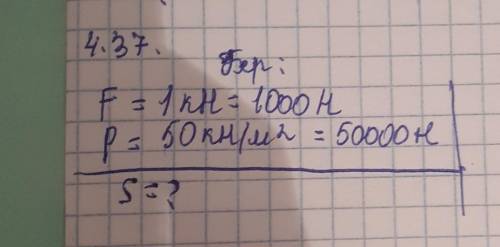 4.37.
Бер:
F = 1кН = 1000Н
P = 50кН/м2 = 50000Н
S = ?